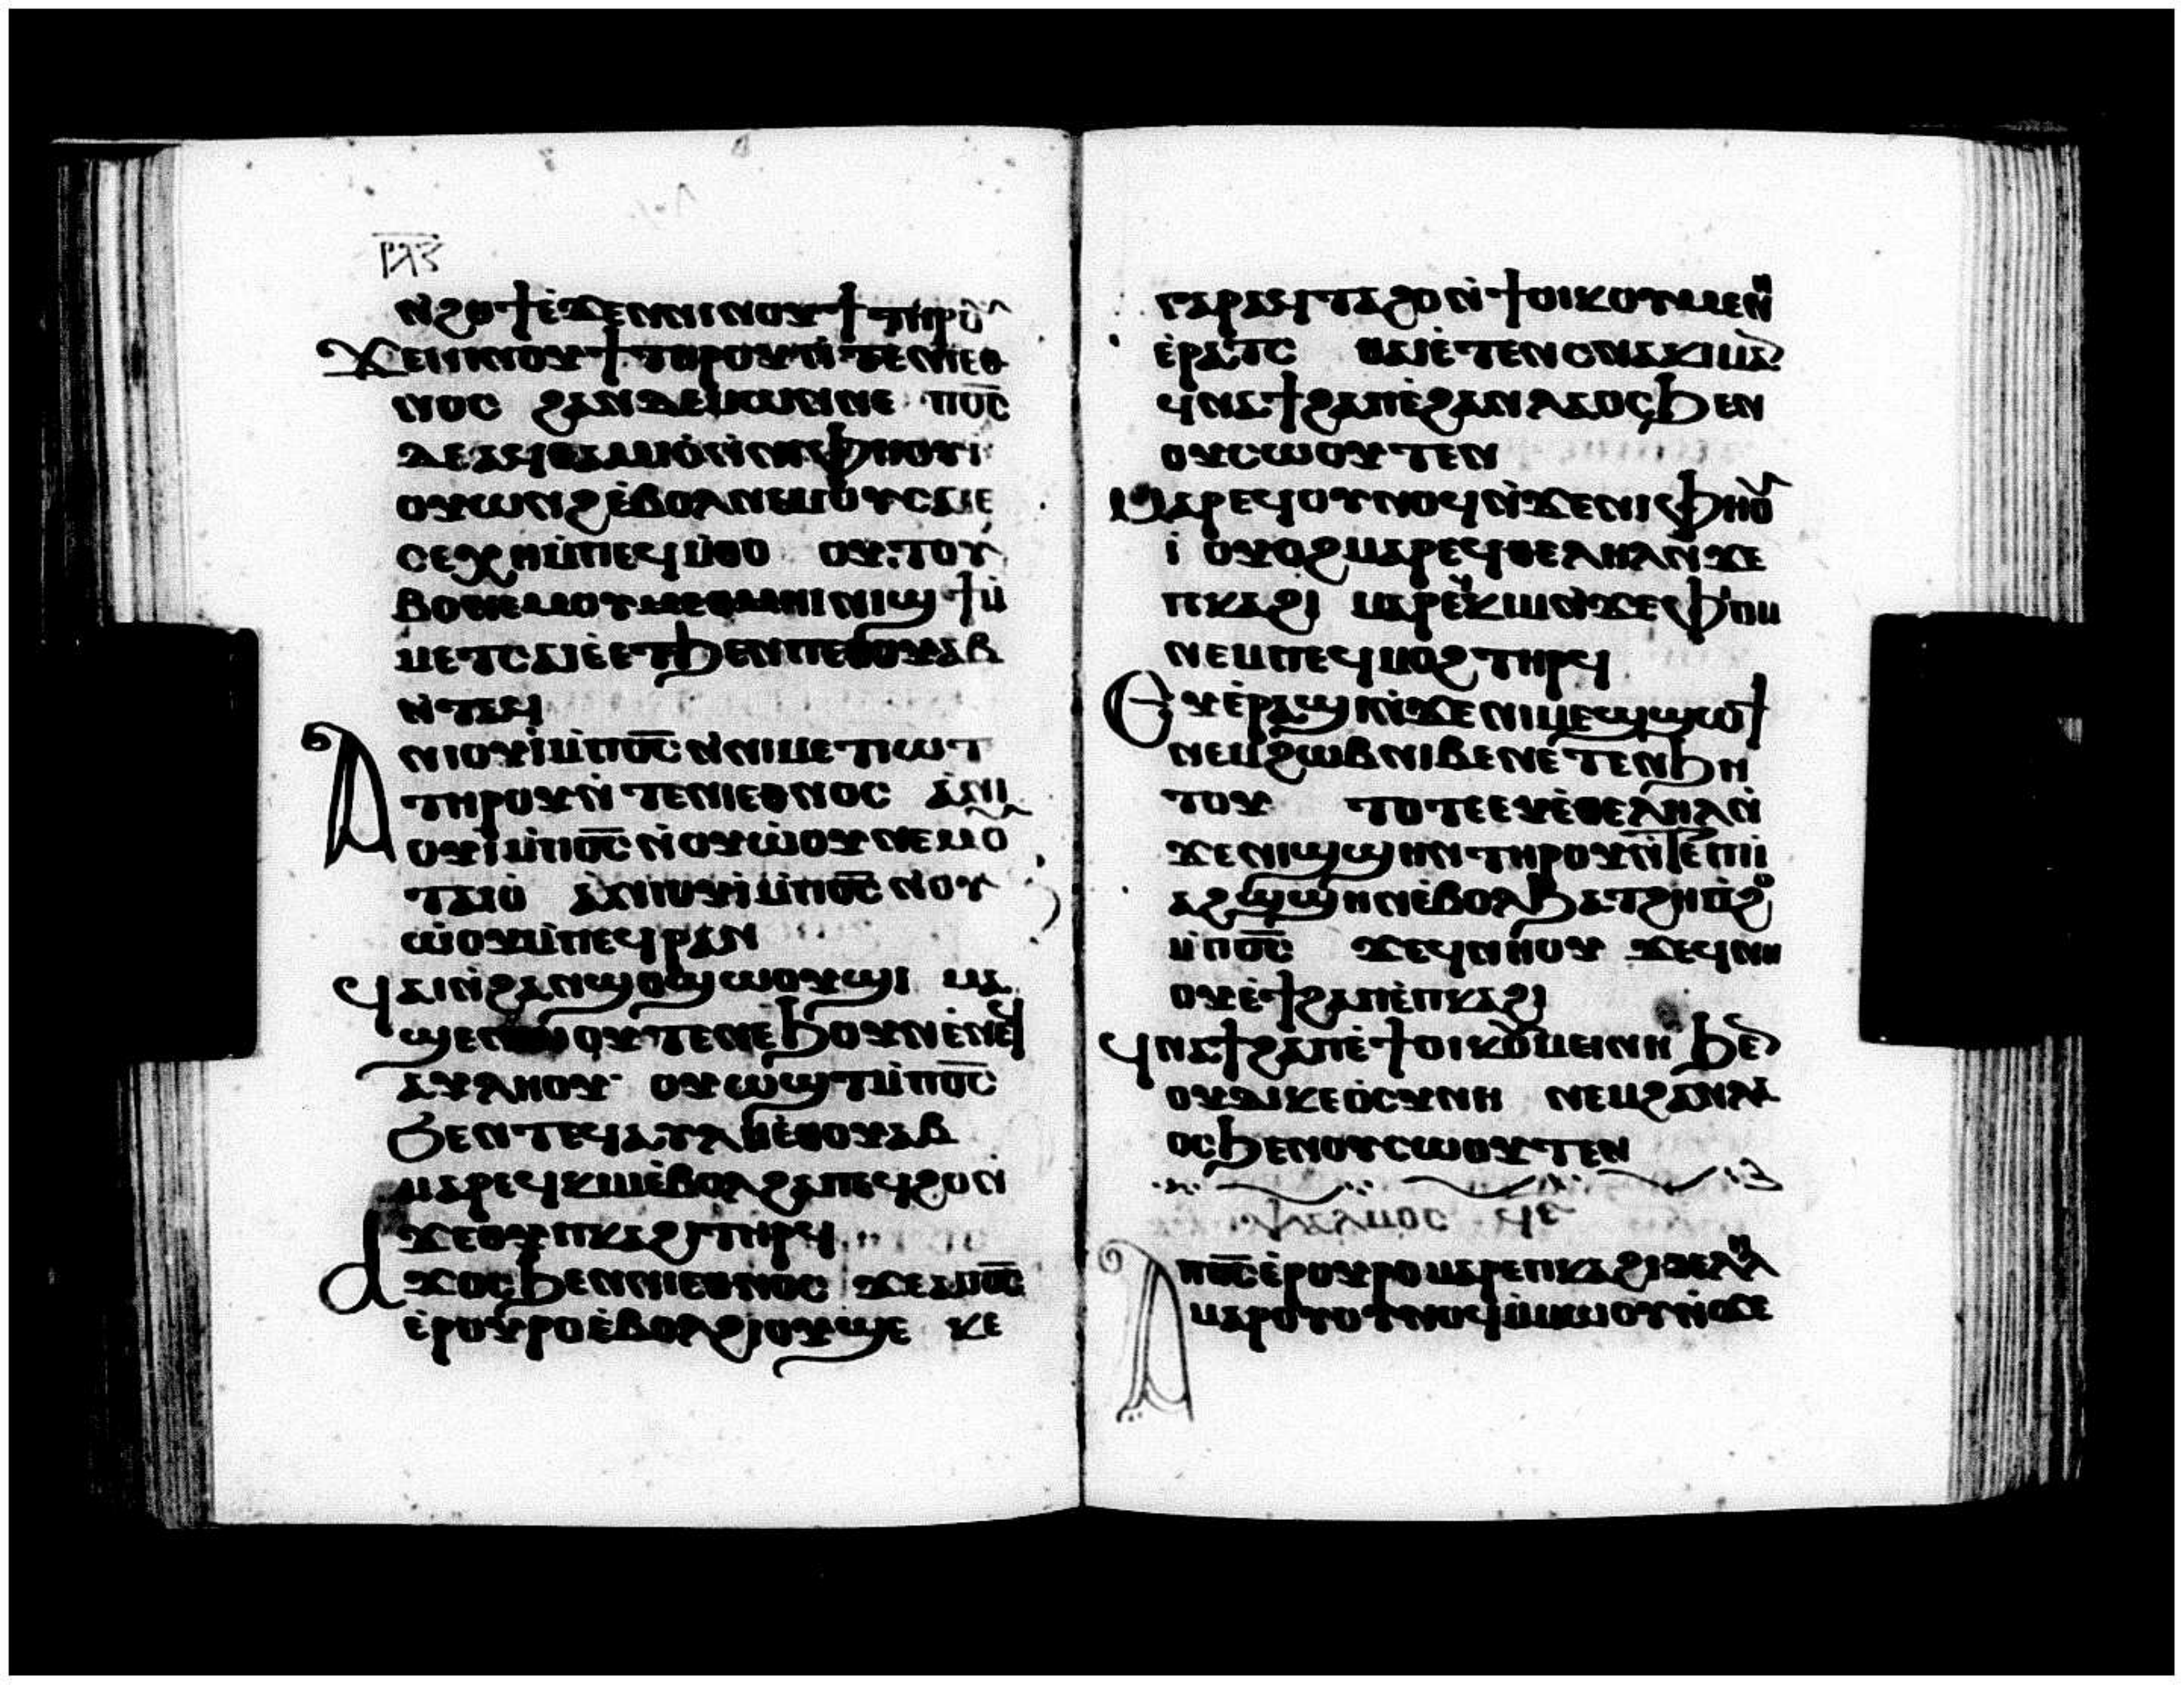 ⲣⲗ̅ⲍ
ⲛ̇ϩⲟϯⲉ̇ϫⲉⲛⲛⲓⲛⲟⲩϯⲧⲏⲣⲟⲩ
ϫⲉⲛⲓⲛⲟⲩϯⲧⲏⲣⲟⲩⲛ̇ⲧⲉⲛⲓⲉⲑ
ⲛⲟⲥ ϩⲁⲛⲇⲉⲙⲱⲛⲛⲉ ⲡⲟ̅ⲥ̅
ⲇⲉⲁϥⲑⲁⲙⲓⲟ̇ⲛ̇ⲛⲓⲫⲏⲟⲩⲓ̇
ⲟⲩⲱⲛϩⲉ̇ⲃⲟⲗⲛⲉⲙⲟⲩⲥⲁⲓⲉ
ⲥⲉⲭⲏⲙ̇ⲡⲉϥⲙ̇ⲑⲟ ⲟⲩⲧⲟⲩ
ⲃⲟⲛⲉⲙⲟⲩⲙⲉⲑⲙⲏⲓⲛⲓϣϯⲙ̇
ⲙⲉⲧⲥⲁⲓⲉ̇ⲉⲧϧⲉⲛⲡⲉⲑⲟⲩⲁⲃ
ⲛ̇ⲧⲁϥ
ⲁⲛⲓⲟⲩⲓ̇ⲙ̇ⲡⲟ̅ⲥ̅ⲛ̇ⲛⲓⲙⲉⲧⲓⲱⲧ
ⲧⲏⲣⲟⲩⲛ̇ⲧⲉⲛⲓⲉⲑⲛⲟⲥ ⲁⲛⲓ
ⲟⲩⲓ̇ⲙ̇ⲡⲟ̅ⲥ̅ⲛ̇ⲟⲩⲱ̇ⲟⲩⲛⲉⲙⲟⲩ
ⲧⲁⲓⲟ̇ ⲁⲛⲓⲟⲩⲓ̇ⲙ̇ⲡⲟ̅ⲥ̅ⲛ̇ⲟⲩ
ⲱ̇ⲟⲩⲙ̇ⲡⲉϥⲣⲁⲛ
ϥⲁⲓⲛ̇ϩⲁⲛϣⲟⲩϣⲱⲟⲩϣⲓ ⲙⲁ
ϣⲉⲛⲱⲟⲩⲧⲉⲛⲉϧⲟⲩⲛⲉ̇ⲛⲉϥ
ⲁⲩⲗⲏⲟⲩ ⲟⲩⲱ̇ϣⲧⲙ̇ⲡⲟ̅ⲥ̅
ϧⲉⲛⲧⲉϥⲁⲩⲗⲏⲉ̇ⲑⲟⲩⲁⲃ
ⲙⲁⲣⲉϥⲕⲓⲙⲉ̇ⲃⲟⲗϩⲁⲡⲉϥϩⲟⲛ̇
ϫⲉⲟⲩⲡⲕⲁϩⲓⲧⲏⲣϥ
ⲁϫⲟⲥϧⲉⲛⲛⲓⲉⲑⲛⲟⲥ ϫⲉⲁⲡⲟ̅ⲥ̅
ⲉ̇ⲣⲟⲩⲣⲟⲉ̇ⲃⲟⲗϩⲓⲟⲩϣⲉ ⲕⲉ
ⲅⲁⲣⲁϥⲧⲁϩⲟⲛ̇ϯⲟⲓⲕⲟⲩⲙⲉⲛⲏ
ⲉ̇ⲣⲁⲧⲥ ϩⲁⲓⲉ̇ⲧⲉⲛⲥⲛⲁⲕⲓⲙⲁⲛ
ϥⲛⲁϯϩⲁⲡⲉ̇ϩⲁⲛⲗⲁⲟⲥϧⲉⲛ
ⲟⲩⲥⲱⲟⲩⲧⲉⲛ
ⲙⲁⲣⲉϥⲟⲩⲛⲟϥⲛ̇ϫⲉⲛⲓⲫⲏⲟⲩ
ⲓ̇ ⲟⲩⲟϩⲙⲁⲣⲉϥⲑⲉⲗⲏⲗⲛ̇ϫⲉ
ⲡⲕⲁϩⲓ ⲙⲁⲣⲉϥⲕⲓⲙⲛ̇ϫⲉⲫⲓⲟⲙ
ⲛⲉⲙⲡⲉϥⲙⲟϩⲧⲏⲣϥ
ⲉⲩⲉ̇ⲣⲁϣⲓⲛ̇ϫⲉⲛⲓⲙⲉϣϣⲱϯ
ⲛⲉⲙϩⲱⲃⲛⲓⲃⲉⲛⲉ̇ⲧⲉⲛϧⲏ
ⲧⲟⲩ ⲧⲟⲧⲉⲉⲩⲉ̇ⲑⲉⲗⲏⲗⲛ̇
ϫⲉⲛⲓϣϣⲏⲛⲧⲏⲣⲟⲩⲛ̇ⲧⲉⲡⲓ
ⲁϩϣϣⲏⲛⲉ̇ⲃⲟⲗϧⲁⲧϩⲏⲙ̇ⲡϩⲟ
ⲙ̇ⲡⲟ̅ⲥ̅ ϫⲉϥⲛⲏⲟⲩ ϫⲉϥⲛⲏ
ⲟⲩⲉ̇ϯϩⲁⲡⲉ̇ⲡⲕⲁϩⲓ
ϥⲛⲁϯϩⲁⲡⲉ̇ϯⲟⲓⲕⲟⲩⲙⲉⲛⲏ ϧⲉⲛ
ⲟⲩⲇⲓⲕⲉⲟ̇ⲥⲩⲛⲏ ⲛⲉⲙϩⲁⲛⲗⲁ
ⲟⲥϧⲉⲛⲟⲩⲥⲱⲟⲩⲧⲉⲛ
ⲯⲁⲗⲙⲟⲥ ϥⲋ
ⲁⲡⲟ̅ⲥ̅ⲉ̇ⲣⲟⲩⲣⲟⲙⲁⲣⲉⲡⲕⲁϩⲓⲑⲉⲗⲏⲗ
ⲙⲁⲣⲟⲩⲟⲩⲛⲟϥⲛ̇ϫⲉ